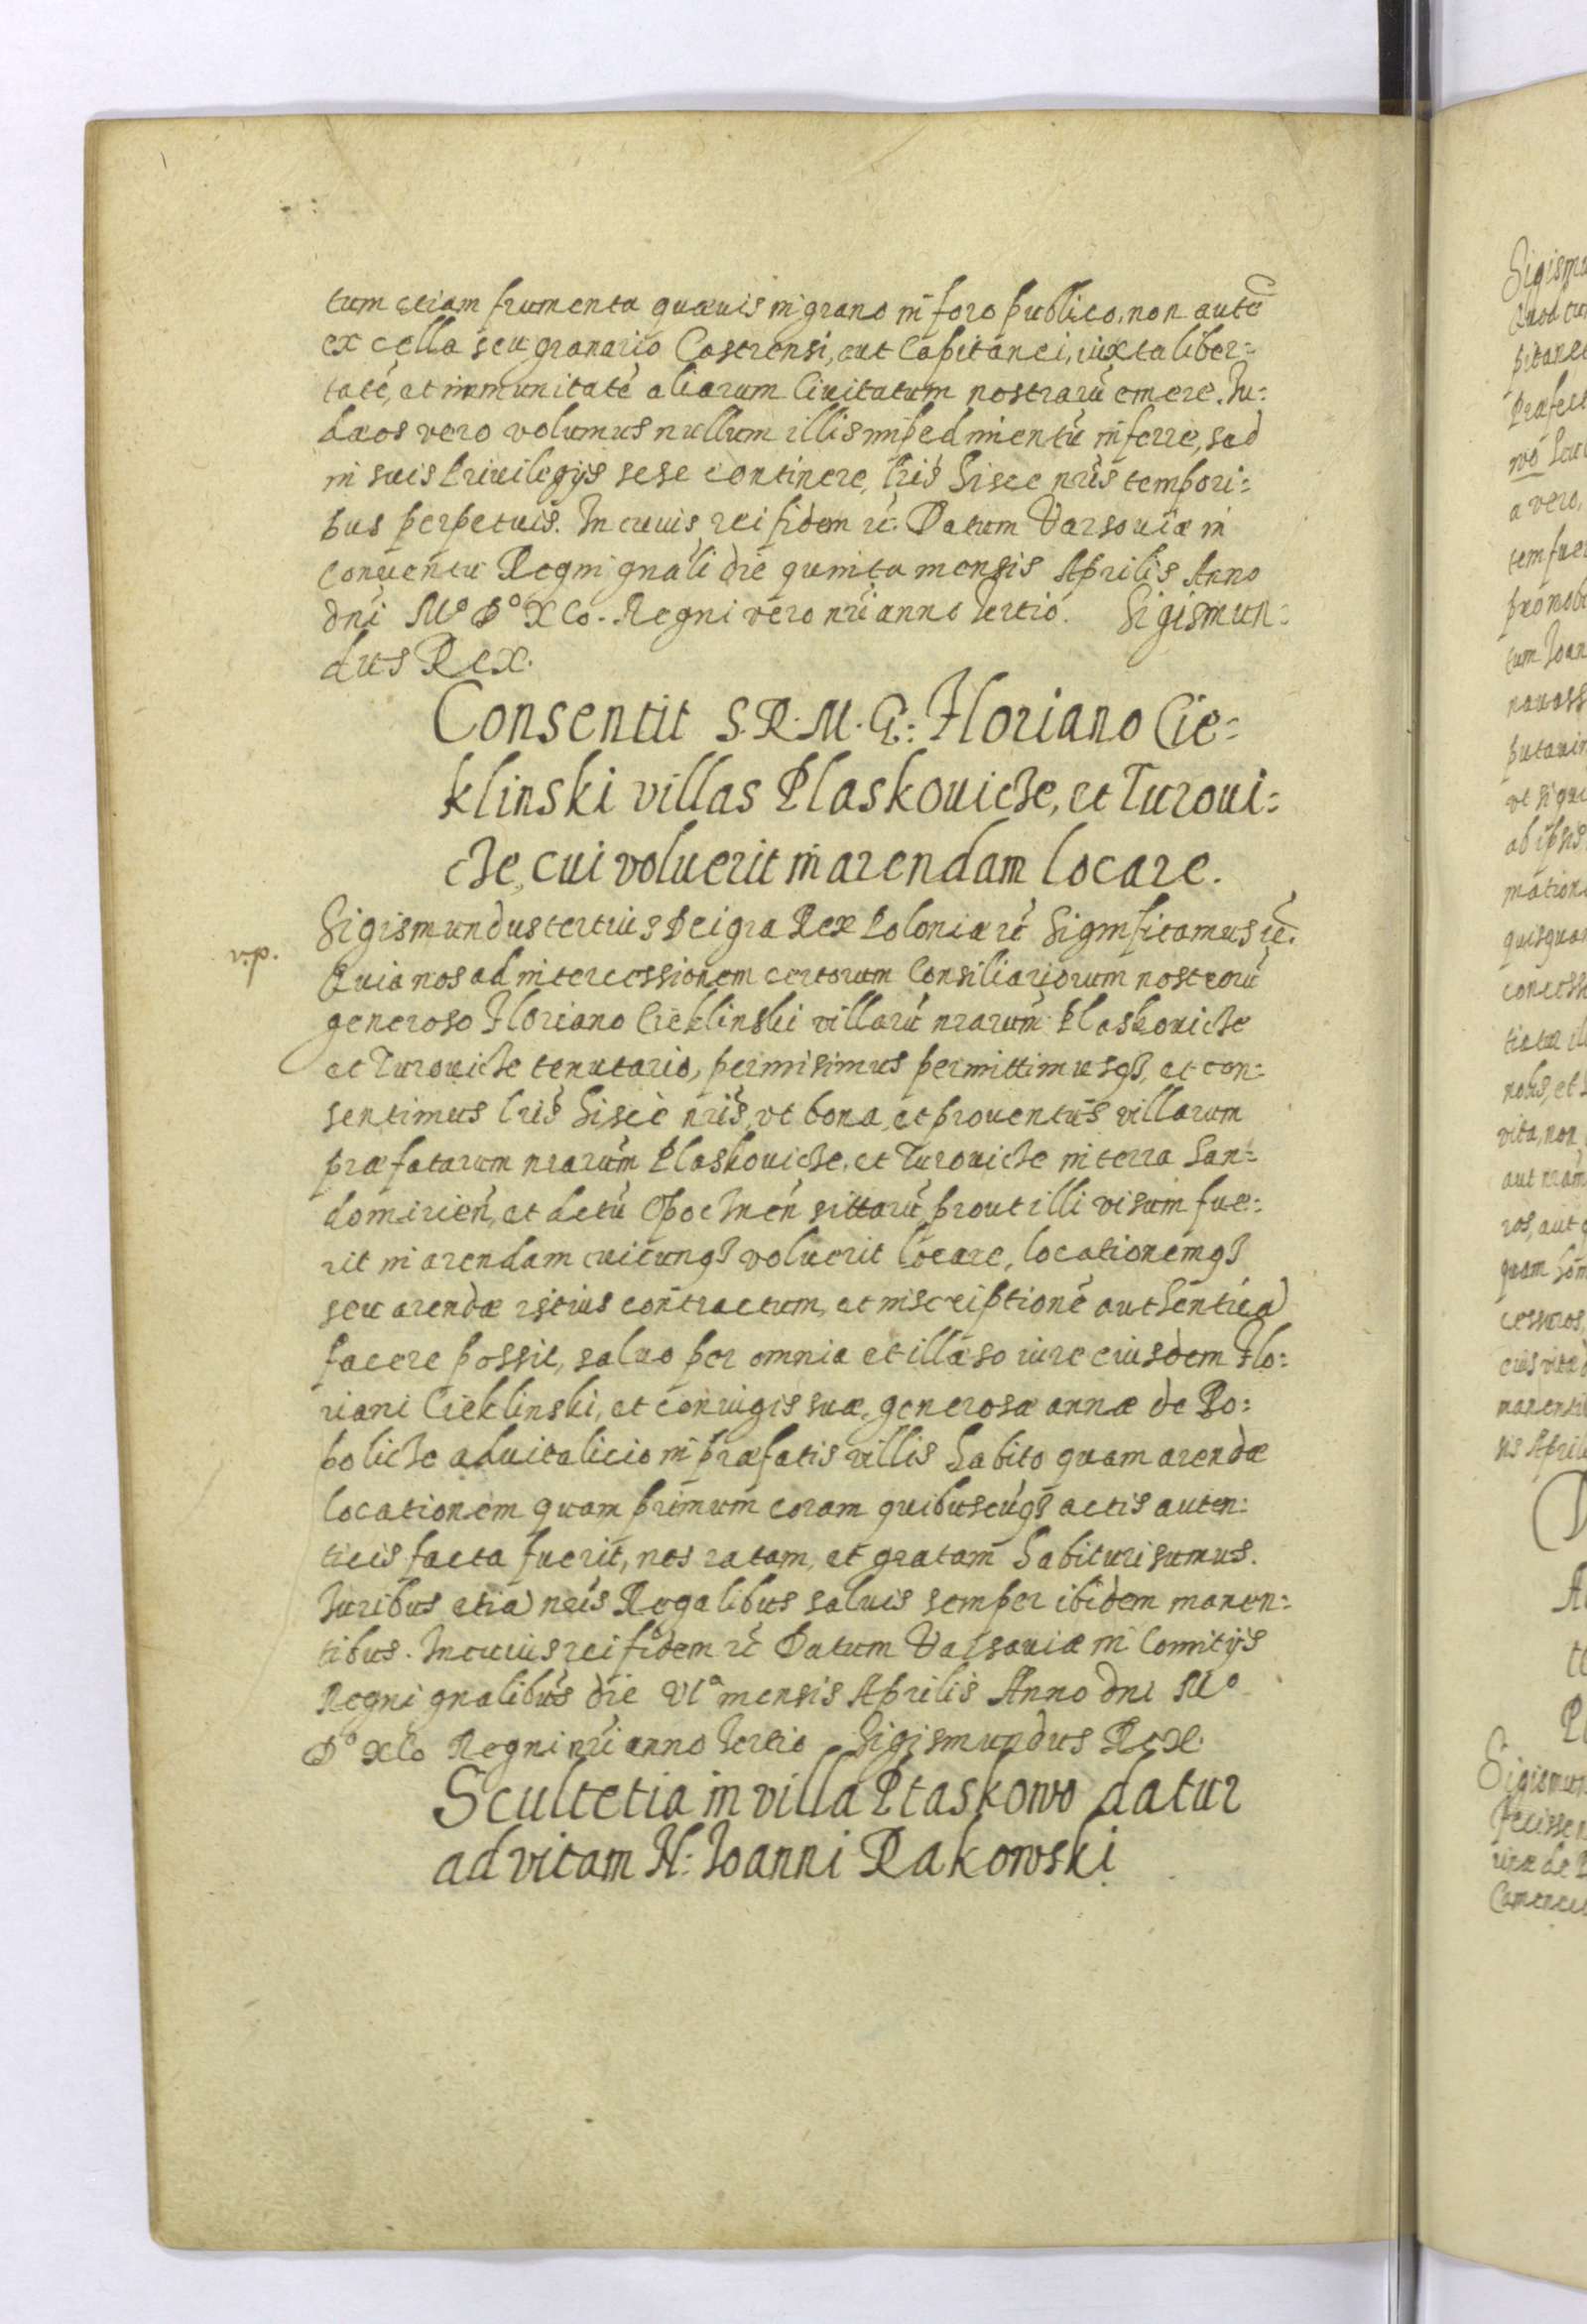 tum etiam frumenta quæuis in grano in foro publico, non autē
ex cella seu granario Castrensi, aut Capitanei, iuxta liber=
tatē, et immunitatē aliarum Ciuitatum nostrarū emere. Iu=
dæos vero volumus nullum illis impedimentū inferre, sed
in suis Priuilegijs sese continere, lrīs hisce nrīs tempori=
bus perpetuis. In cuius rei fidem rc. Datum Varsouiæ in
Conuentu Regni gnāli die quinta mensis Aprilis Anno
dnī Mº Dº XCo. Regni vero nrī anno tertio. Sigismun=
dus Rex.
Consentit S.R.M. G: Floriano Cie=
klinski villas Plaskouicze, et Turoui=
cze, cui voluerit in arendam locare.
v.p.
Sigismundus tertius Dei gra Rex Poloniæ rc̄ Significamus rc̄.
Quia nos ad intercessionem certorum Consiliariorum nostrorū
generoso Floriano Cieklinski villarū nrarum Plaskouicze
et Turouicze tenutario, permisimus permittimusqȝ, et con=
sentimus lrīs hisce nrīs, vt bona, et prouentus villarum
præfatarum nrarum Plaskouicze, et Turouicze in terra San=
domirien̄, et dctū Opocznen̄ sittarū prout illi visum fue=
rit in arendam cuicunqȝ voluerit locare, locationemqȝ
seu arendæ istius contractum, et inscriptionē authenticā
facere possit, saluo per omnia et illæso iure eiusdem Flo=
riani Cieklinski, et coniugis suæ, generosæ annæ de Po=
bolicze aduitalicio in præfatis villis habito quam arendæ
locationem quam primum coram quibuscūqȝ actis auten=
ticis facta fuerit, nos ratam, et gratam habituri sumus.
Iuribus etiā nrīs Regalibus saluis semper ibidem manen=
tibus. In cuius rei fidem rc̄ Datum Varsauiæ in Comitijs
Regni gnālibus die VIª mensis Aprilis Anno dnī Mº
Dº XCo Regni nrī anno tertio Sigismundus Rex.
Scultetia in villa Ptaskowo datur
ad vitam N: Ioanni Rakowski